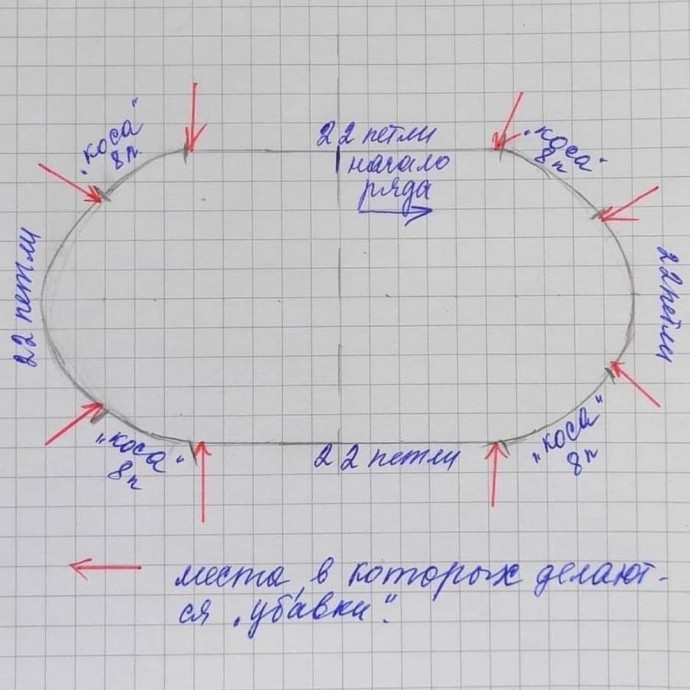 22 петли
начало
ряда
„коса“
8п.
„коса“
8п
22 петли
22 петли
„коса“
8п
22 петли
„коса“
8п
места, в которых делают-
ся „убавки“.